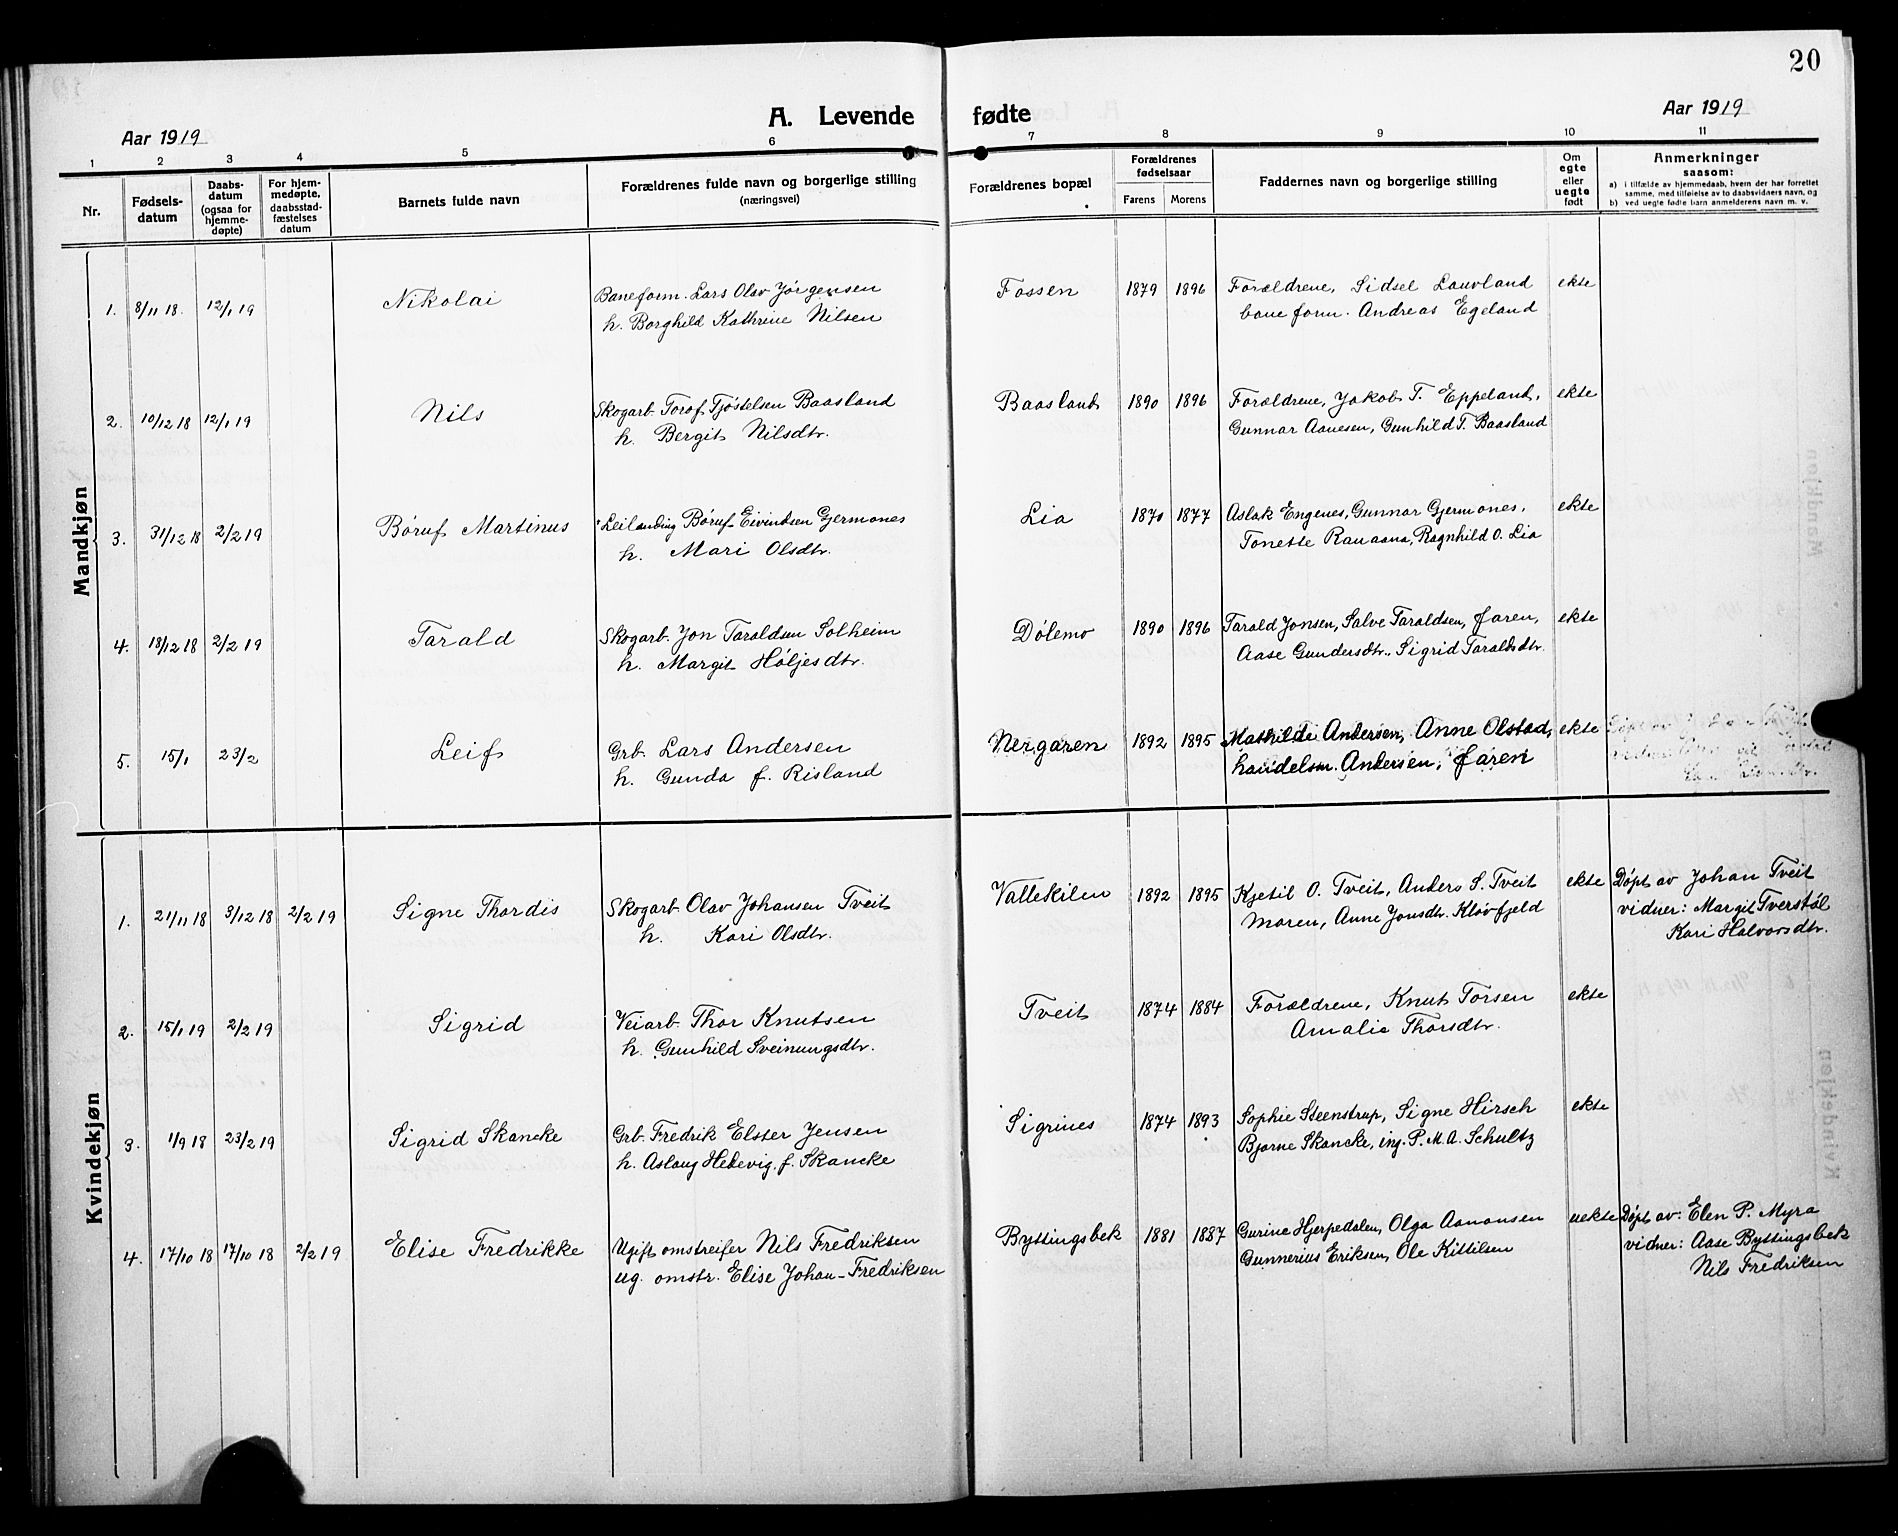 20
A. Levende fødte
Aar 1919
Aar 1919
1 2 3 4 5 6 7 8 9 10 11
Nr.
Fødsels-
datum
Daabs-
datum
(ogsaa for
hjemme-
døpte)
For hjem-
medøpte,
daabsstad-
fæstelses
datum
Barnets fulde navn
Forældrenes fulde navn og borgerlige stilling
(næringsvei)
Forældrenes bopæl
Forældrenes
fødselsaar
Farens Morens
Faddernes navn og borgerlige stilling
Om
egte
eller
uegte
født
Anmerkninger
saasom:
a) i tilfælde av hjemmedaab, hvem der har forrettet
samme, med tilføielse av to daabsvidners navn, og
b) ved uegte fødte barn anmelderens navn m. v.
Mandkjøn
1. 8/11 18. 12/1 19 Nikolai Baneform. Lars Olav Jørgensen Fossen 1879 1896 Forældrene, Sidsel Lauvland ekte
h. Borghild Kathrine Nilsen baneform. Andreas Egeland
2. 10/12 18 12/1 19 Nils Skogarb. Torof Tjøstelsen Baasland Baasland 1890 1896 Forældrene, Jakob T. Eppeland, ekte
h. Bergit Nilsdtr. Gunnar Aanesen, Gunhild T. Baasland
3. 31/12 18 2/2 19 Børuf Martinus Leilending Børuf Eivindsen Gjermones Lia 1870 1877 Aslak Engenes, Gunnar Gjermones, ekte
h. Mari Olsdtr. Tonette Ranaana, Ragnhild O. Lia
4. 13/12 18 2/2 19 Tarald Skogarb. Jon Taraldsen Solheim Dølemo 1890 1896 Tarald Jonsen, Salve Taraldsen, faren, ekte
h. Margit Høljesdtr. Aase Gundersdtr., Sigrid Taraldsdtr.
5. 15/1 23/2 Leif Grb. Lars Andersen Nergaren 1892 1895 Mathilde Andersen, Anne Olstad, ekte
h. Gunda f. Risland handelsm. Andersen, faren
Kvindekjøn
1. 21/11 18 3/12 18 2/2 19 Signe Thordis Skogarb. Olav Johansen Tveit Vallekilen 1892 1895 Kjetil O. Tveit, Anders S. Tveit ekte Døpt av Johan Tveit
h. Kari Olsdtr. moren, Anne Jonsdtr. Kløvfjeld vidner: Margit Tverstøl
Kari Halvorsdtr.
2. 15/1 19 2/2 19 Sigrid Veiarb. Thor Knutsen Tveit 1874 1884 Forældrene, Knut Torsen ekte
h. Gunhild Sveinungsdtr. Amalie Thorsdtr.
3. 1/9 18 23/2 19 Sigrid Skancke Grb. Fredrik Elster Jensen Sigrines 1874 1893 Sophie Steenstrup, Signe Hirsch ekte
h. Aslaug Hedevig f. Skancke Bjarne Skancke, ing. P. M. A. Schultz
4. 17/10 18 17/10 18 2/2 19 Elise Fredrikke Ugift omstreifer Nils Fredriksen Byttingsbek 1881 1887 Gurine Hjerpedalen, Olga Aanonsen uekte Døpt av: Elen P. Myra
ug. omstr. Elise Johan-Fredriksen Gunnerius Eriksen, Ole Kittilsen vidner: Aase Byttingsbek
Nils Fredriksen